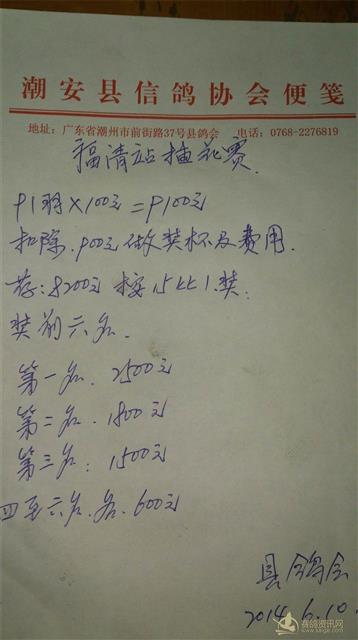 潮安县信鸽协会便笺
地址：广东省潮州市前街路37号县鸽会 电话：0768-2276819
福清站插花赛.
91羽×100元=9100元
扣除.900元做奖杯及费用.
存:8200元 按15比1奖.
奖前六名.
第一名.2500元
第二名.1800元
第三名:1500元
四至六名.各.600元
县鸽会
2014.6.10.
赛鸽资讯网
www.saige.com